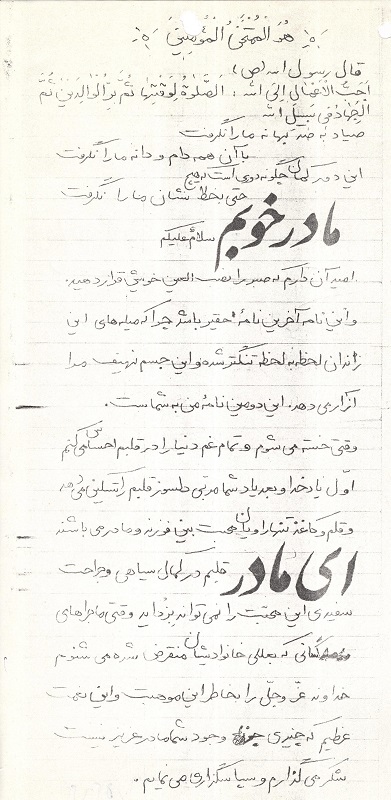 هُوَ الْمُمْتَحِنُ الْمُؤْمِنِینَ
قال رسول الله (ص)
اَحَبُّ الْاَعْمٰالِ اِلَی اللّٰه : اَلصَّلٰوةُ لِوَقْتِهٰا ثُمَّ بِرُّ الْوٰالِدَیْنِ ثُمَّ
الْجِهٰادُ فی سَبیلِ اللّٰه
صیاد به صد بهانه ما را نگرفت
با آن همه دام و دانه ما را نگرفت
این دور کمان چگونه دوری است که هیچ
حتی به خطا نشان ما را نگرفت
مادر خوبم
سلام علیکم
امید آن دارم که صبر را نصب العین خویش قرار دهید.
و این نامه آخرین نامهٔ حقیر باشد چرا که میله های این
زندان لحظه به لحظه تنگتر شده و این جسم نحیف مرا
آزار می دهد. این دومین نامهٔ من به شماست.
وقتی خسته می شوم و تمام غم دنیا را در قلبم احساس می کنم
اوّل یاد خدا و بعد یاد شما مربی دلسوز قلبم را تسکین می دهد
و قلم و کاغذ تنها راویان محبت بین فرزند و مادر می باشند
ای مادر
قلبم در کمال سیاهی و جراحت
سفیدی این محبّت را نمی تواند بزداید وقتی ماجراهای
که بعللی خانوادیشان منقرض شده می شنوم
خداوند عزّ و جلّ را بخاطر این موهبت و این نعمت
عظیم که چیزی جز وجود شما مادر عزیز نیست
شکر می گذارم و سپاسگزاری می نمایم.